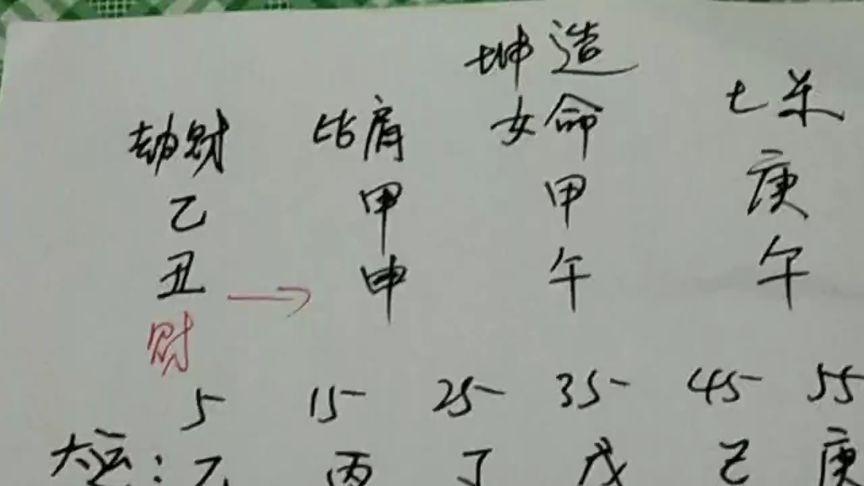 坤造
劫财 比肩 女命 七杀
乙 甲 甲 庚
丑 申 午 午
财
5 15 25 35 45 55
大运: 乙 丙 丁 戊 己 庚